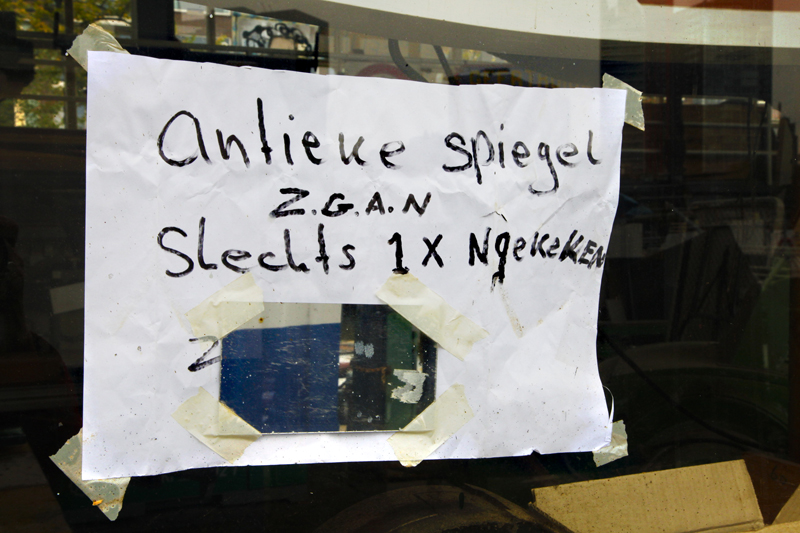 Antieke spiegel
Z.G.A.N
Slechts 1 X Ngekeken
Z